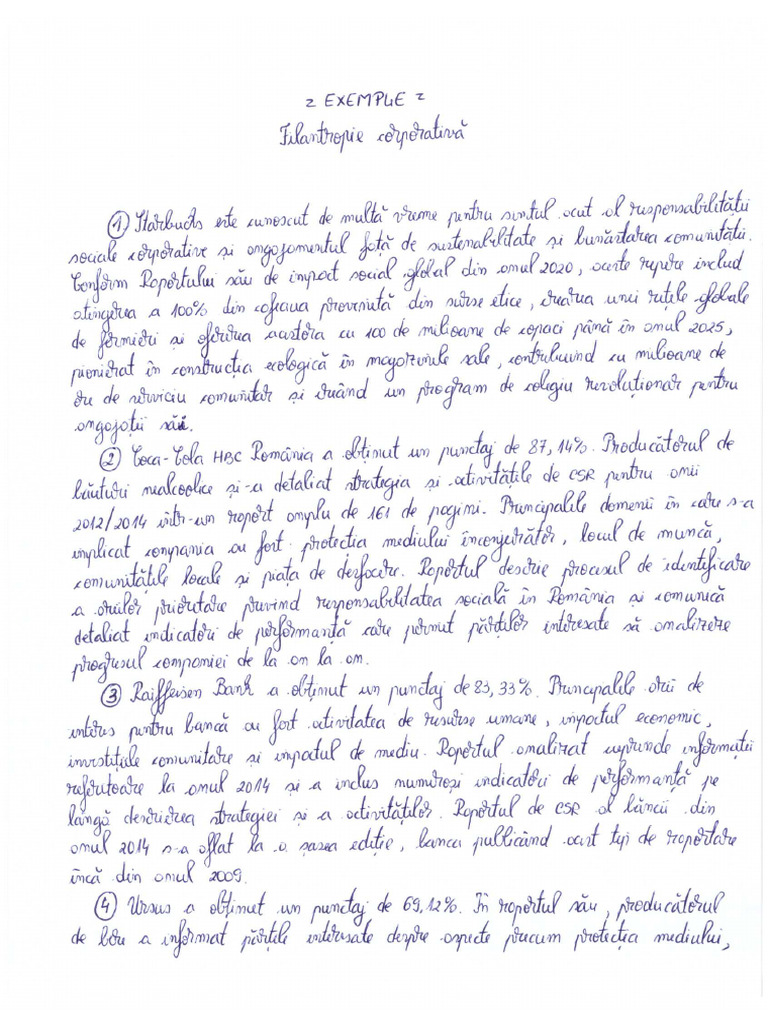 ~ EXEMPLE ~
Filantropie corporativă
① Starbucks este cunoscut de multă vreme pentru simțul acut al responsabilității
sociale corporative și angajamentul față de sustenabilitate și bunăstarea comunității.
Conform Raportului său de impact social global din anul 2020, aceste repere includ
atingerea a 100% din cafeaua provenită din surse etice, crearea unei rețele globale
de fermieri și oferirea acestora cu 100 de milioane de copaci până în anul 2025,
pionierat în construcția ecologică în magazinele sale, contribuind cu milioane de
ore de serviciu comunitar și creând un program de colegiu revoluționar pentru
angajații săi.
② Coca-Cola HBC România a obținut un punctaj de 87,14%. Producătorul de
băuturi nealcoolice și-a detaliat strategia și activitățile de CSR pentru anii
2012/2014 într-un raport amplu de 161 de pagini. Principalele domenii în care s-a
implicat compania au fost protecția mediului înconjurător, locul de muncă,
comunitățile locale și piața de desfacere. Raportul descrie procesul de identificare
a ariilor prioritare privind responsabilitatea socială în România și comunică
detaliat indicatori de performanță care permit părților interesate să analizeze
progresul companiei de la an la an.
③ Raiffeisen Bank a obținut un punctaj de 83,33%. Principalele arii de
interes pentru bancă au fost activitatea de resurse umane, impactul economic,
investițiile comunitare și impactul de mediu. Raportul analizat cuprinde informații
referitoare la anul 2014 și a inclus numeroși indicatori de performanță pe
lângă descrierea strategiei și a activităților. Raportul de CSR al băncii din
anul 2014 s-a aflat la a șasea ediție, banca publicând acest tip de raportare
încă din anul 2009.
④ Ursus a obținut un punctaj de 69,12%. În raportul său, producătorul
de bere a informat părțile interesate despre aspecte precum protecția mediului,